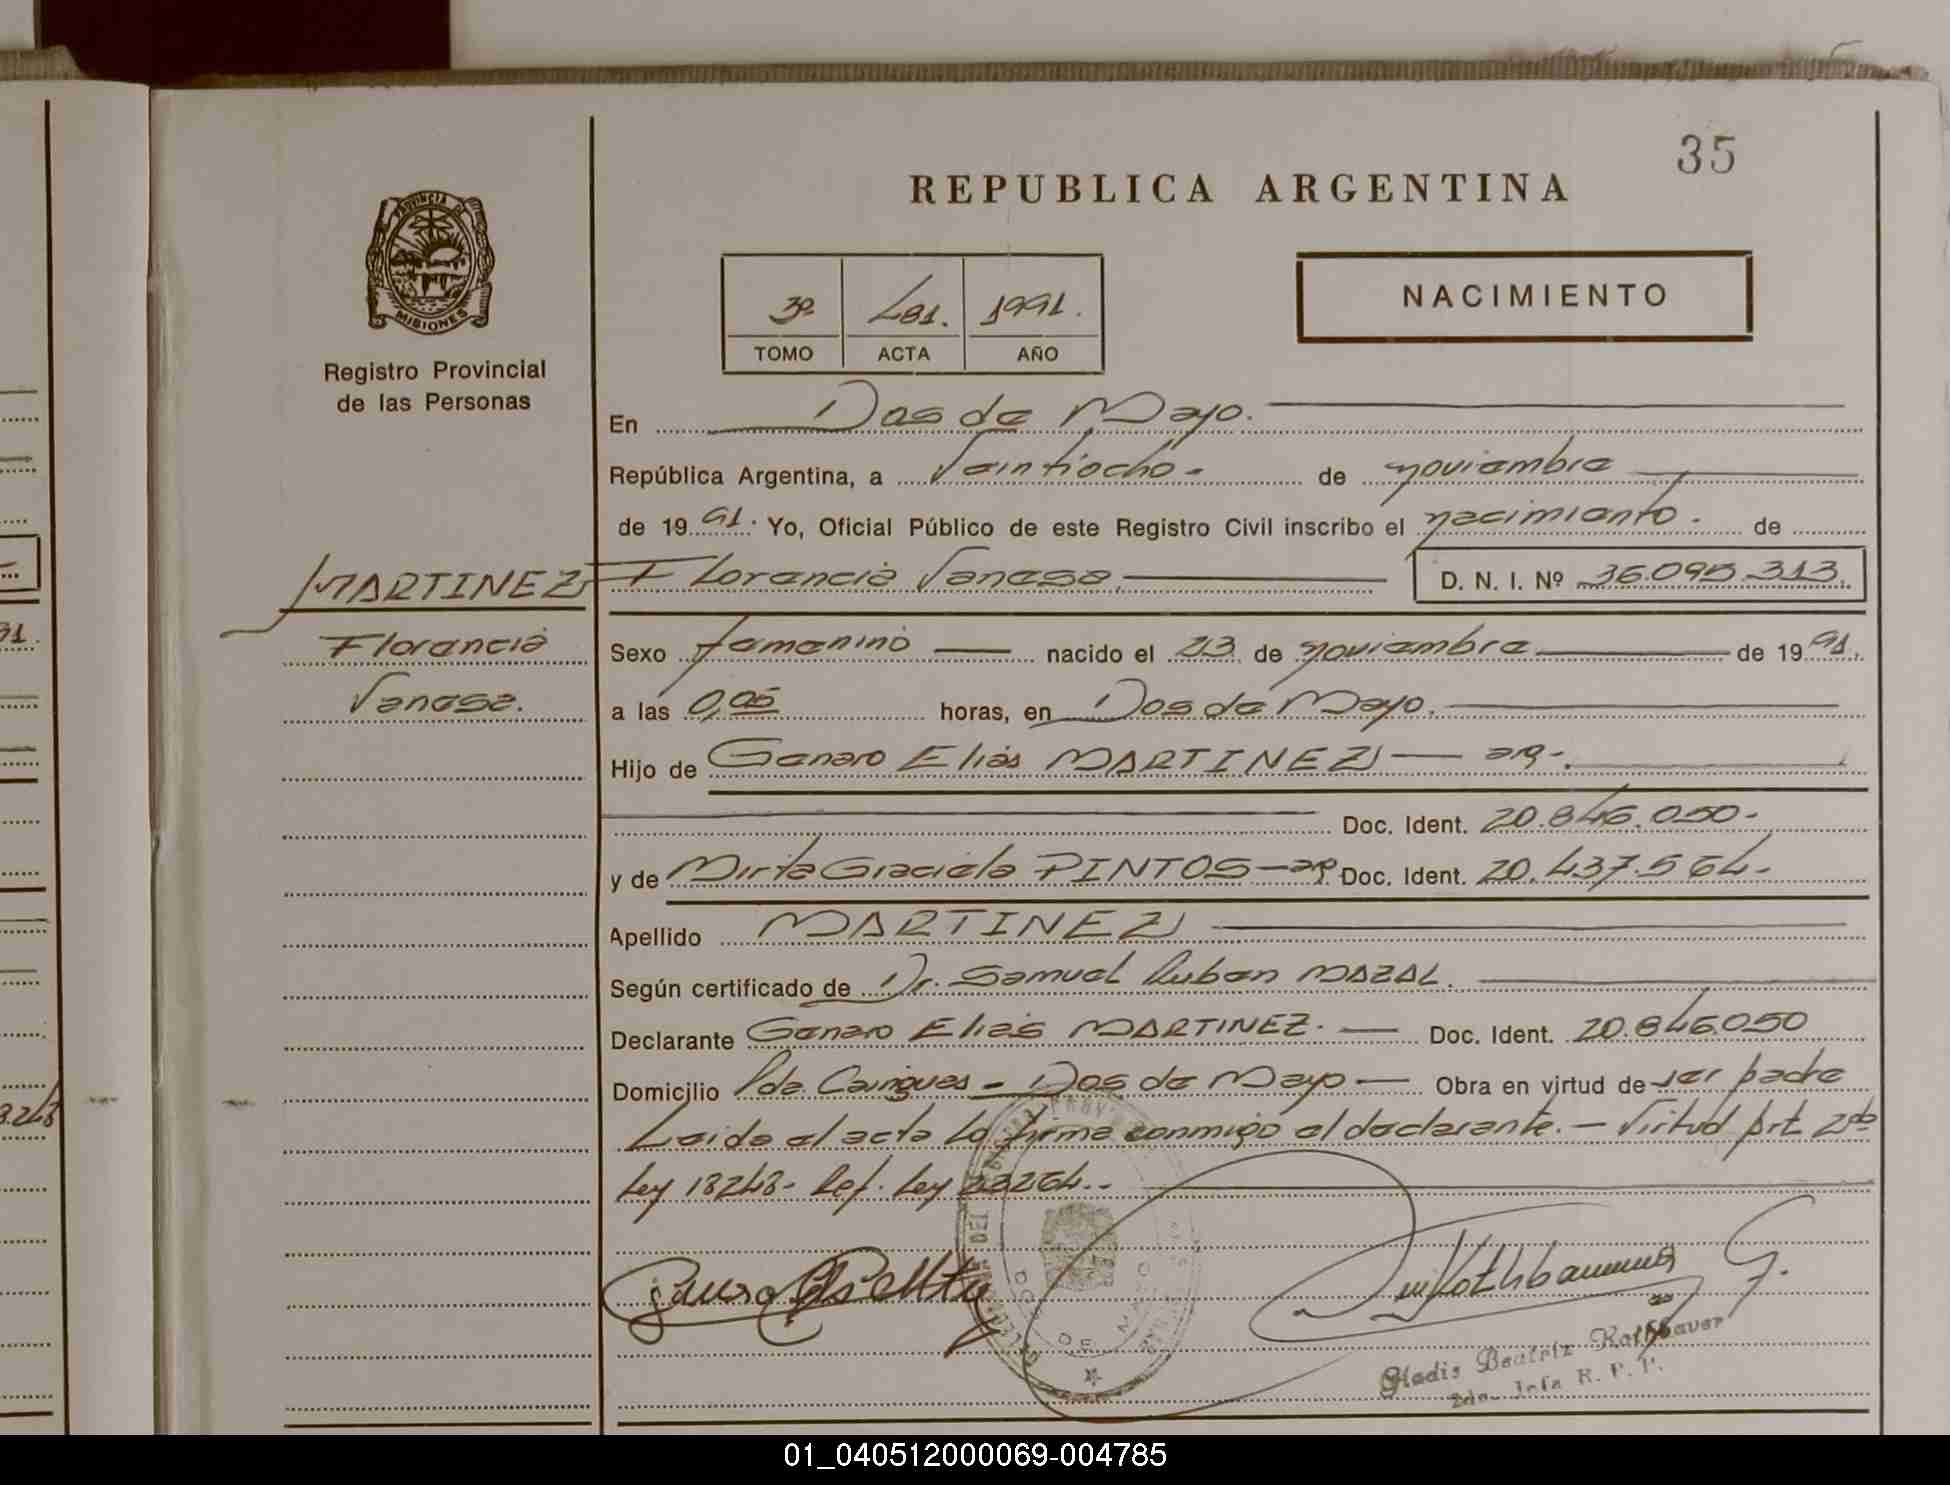 35
REPUBLICA ARGENTINA
PROVINCIA DE
MISIONES
Registro Provincial
de las Personas
3º 481. 1991.
TOMO ACTA AÑO
NACIMIENTO
En Dos de Mayo.
República Argentina, a Veintiocho- de noviembre
de 1991. Yo, Oficial Público de este Registro Civil inscribo el nacimiento. de
MARTINEZ Florencia Vanesa. D. N. I. Nº 36.095.313.
Florencia
Vanesa.
Sexo femenino nacido el 23 de noviembre de 1991.
a las 0,05 horas, en Dos de Mayo.
Hijo de Genaro Elías MARTINEZ — arg-.
Doc. Ident. 20.846.050-
y de Mirta Graciela PINTOS — arg. Doc. Ident. 20.437.564-
Apellido MARTINEZ
Según certificado de Dr. Samuel Ruben MAZAL.
Declarante Genaro Elías MARTINEZ. — Doc. Ident. 20.846.050
Domicilio Pda. Cainguas - Dos de Mayo — Obra en virtud de ser padre
Leida el acta la firma conmigo el declarante. - Virtud Art. 2do
Ley 18248- Ref. Ley 23264.-
Gladis Beatriz Rothbauer
2da. Jefa R. P. P.
01_040512000069-004785